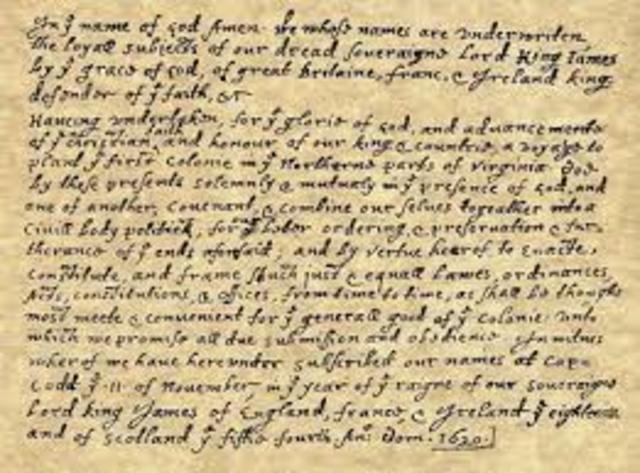 In yͤ name of god Amen. we whose names are underwriten
the loyall subiects of our dread soveraigne Lord King Iames
by yͤ grace of god, of great britaine, franc, & Ireland king,
defender of yͤ faith, &c
Haveing undertaken, for yͤ glorie of god, and advancements
of yͤ christian faith and honour of our king & countrie, a voyage to
plant yͤ first colonie in yͤ Northerne parts of virginia. doe
by these presents solemnly & mutualy in yͤ presence of god, and
one of another, covenant, & combine our selves togeather into a
civill body politick, for our better ordering, & preservation & fur-
therance of yͤ ends aforesaid; and by vertue hearof to enacte,
constitute, and frame shuch just & equall lawes, ordinances,
Acts, constitutions, & offices, from time to time, as shall be thought
most meete & convenient for yͤ generall good of yͤ colonie: unto
which we promise all due submission and obedience. In witnes
wherof we have hereunder subscribed our names at cap-
Codd yͤ .11. of November, in yͤ year of yͤ raigne of our soveraigne
Lord king James of England, france, & Ireland yͤ eighteenth
and of scotland yͤ fiftie fourth. An: dom. 1620.]